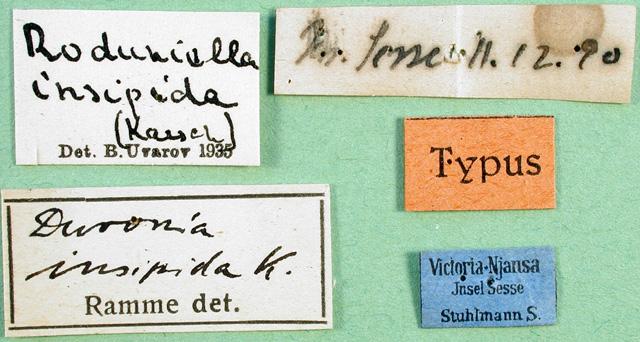 Roduniella
insipida
(Karsch)
Det. B. Uvarov 1935
Sesse 11. 12. 90
Typus
Duronia
insipida K.
Ramme det.
Victoria-Njansa
Jnsel Sesse
Stuhlmann S.